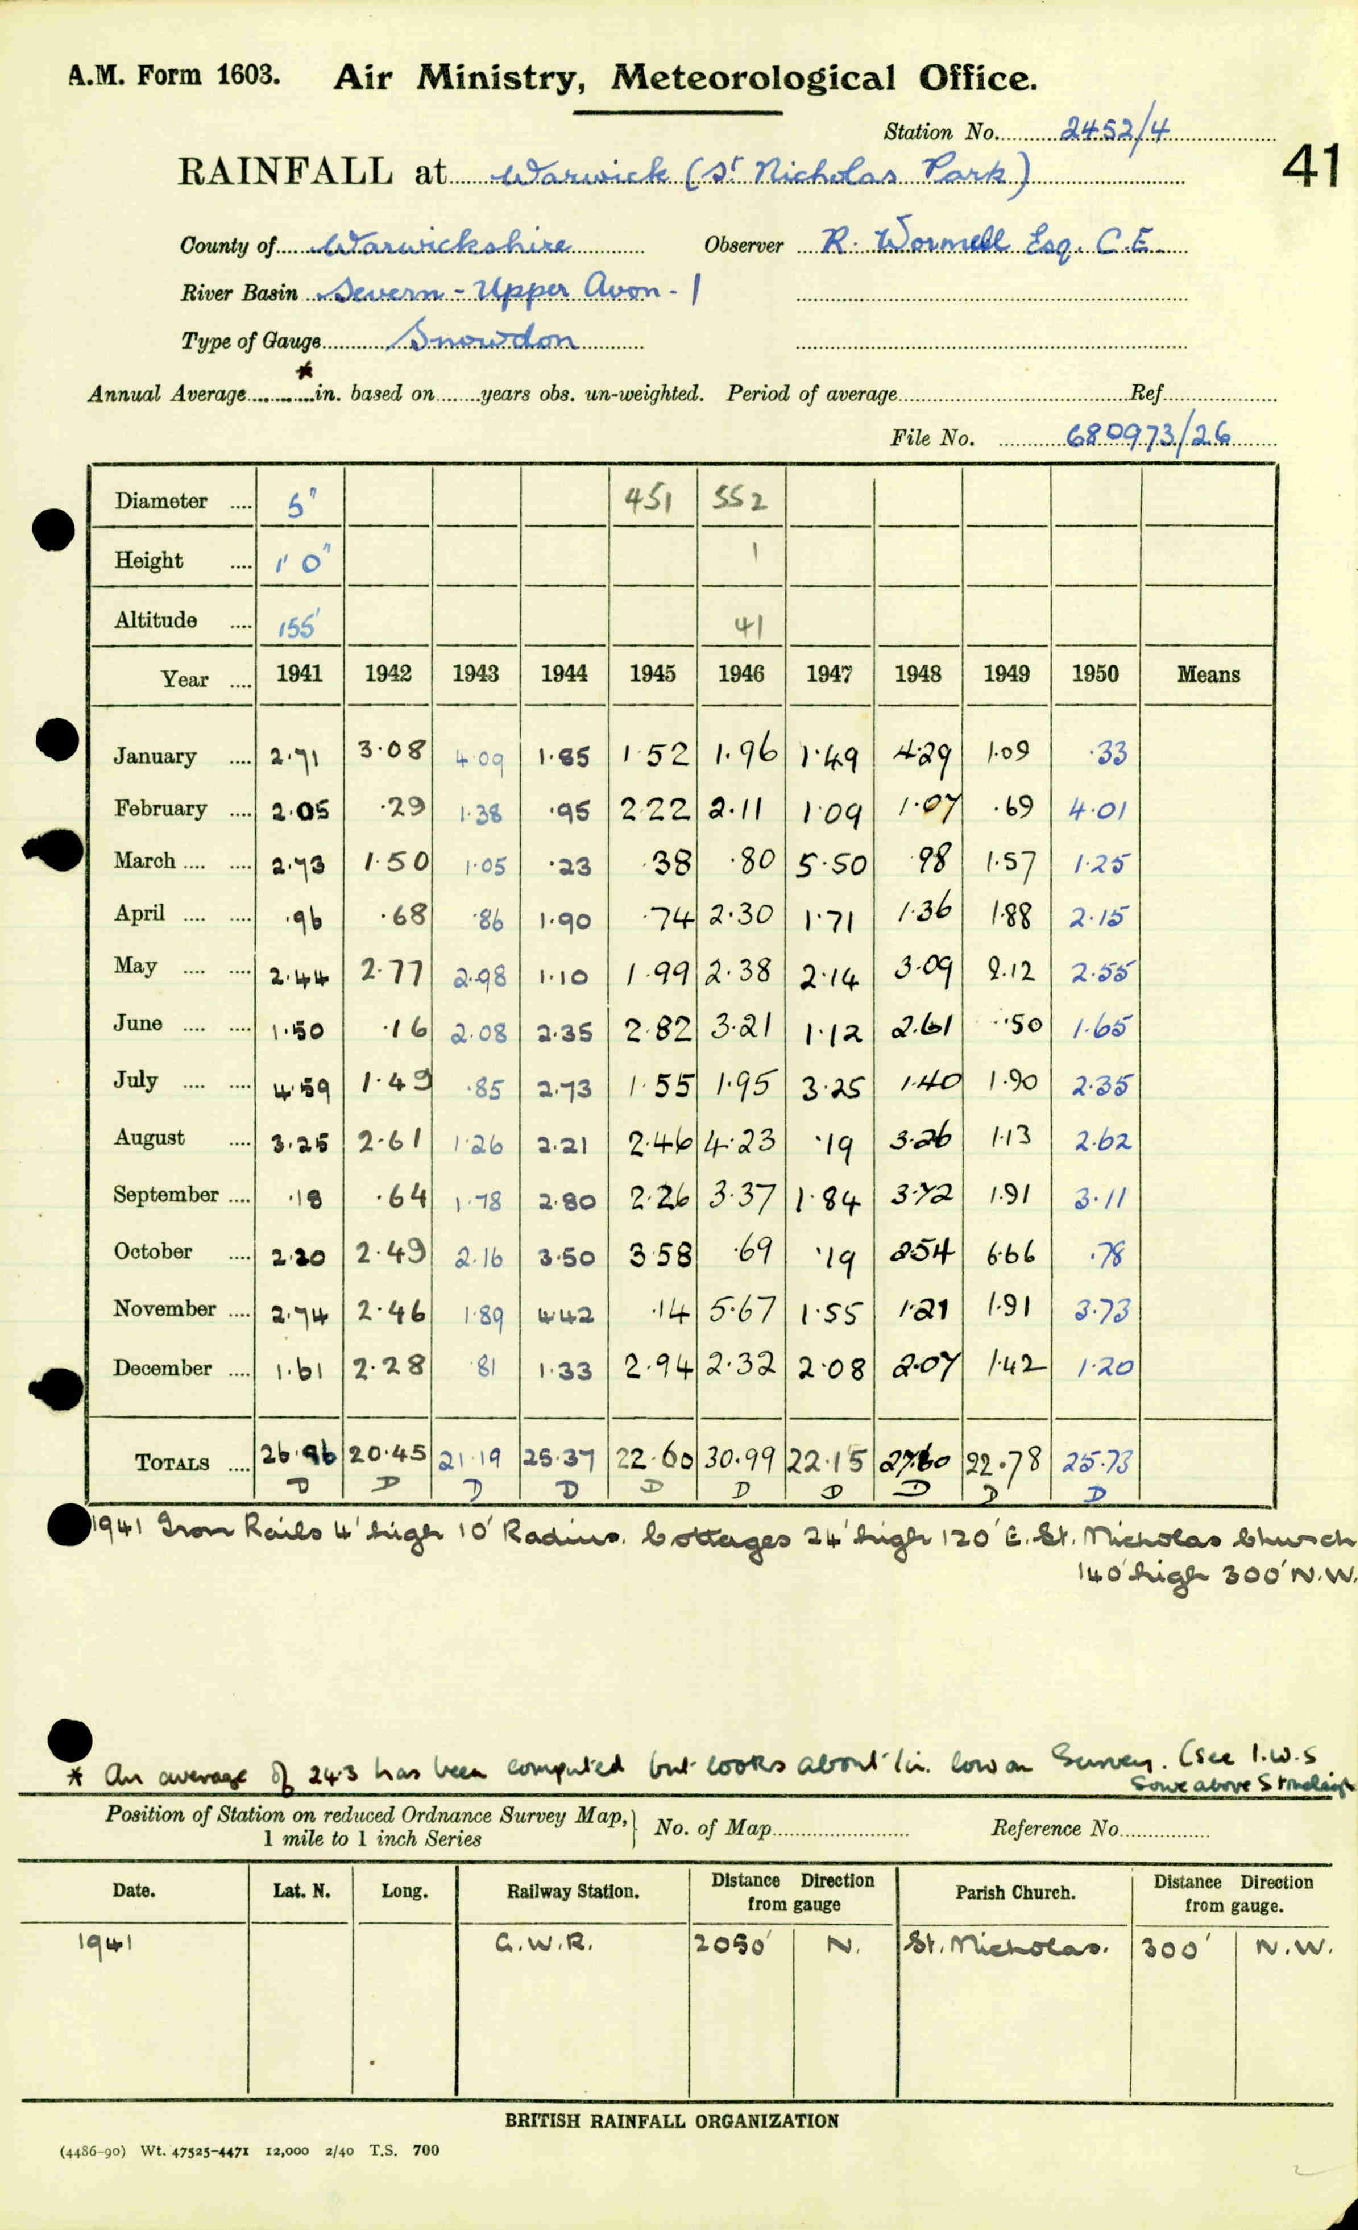 A.M. Form 1603. Air Ministry, Meteorological Office.
Station No. 2452/4
41
RAINFALL at Warwick (St Nicholas Park)
County of Warwickshire Observer R. Wormell Esq. C.E.
River Basin Severn - Upper Avon - 1
Type of Gauge Snowdon
*
Annual Average in. based on years obs. un-weighted. Period of average Ref.
File No. 680973/26
Diameter 5" 451 552
Height 1' 0" 1
Altitude 155' 41
Year 1941 1942 1943 1944 1945 1946 1947 1948 1949 1950 Means
January 2.71 3.08 4.09 1.85 1.52 1.96 1.49 4.29 1.09 .33
February 2.05 .29 1.38 .95 2.22 2.11 1.09 1.07 .69 4.01
March 2.73 1.50 1.05 .23 .38 .80 5.50 .98 1.57 1.25
April .96 .68 .86 1.90 .74 2.30 1.71 1.36 1.88 2.15
May 2.44 2.77 2.98 1.10 1.99 2.38 2.14 3.09 2.12 2.55
June 1.50 .16 2.08 2.35 2.82 3.21 1.12 2.61 .50 1.65
July 4.59 1.49 .85 2.73 1.55 1.95 3.25 1.40 1.90 2.35
August 3.25 2.61 1.26 2.21 2.46 4.23 .19 3.26 1.13 2.62
September .18 .64 1.78 2.80 2.26 3.37 1.84 3.72 1.91 3.11
October 2.20 2.49 2.16 3.50 3.58 .69 .19 2.54 6.66 .78
November 2.74 2.46 1.89 4.42 .14 5.67 1.55 1.21 1.91 3.73
December 1.61 2.28 .81 1.33 2.94 2.32 2.08 2.07 1.42 1.20
TOTALS 26.96 20.45 21.19 25.37 22.60 30.99 22.15 27.60 22.78 25.73
D D D D D D D D D D
1941 Iron Rails 4' high 10' Radius. Cottages 24' high 120' E. St. Nicholas Church
140' high 300' N.W.
* An average of 24.3 has been computed but looks about 1 in. low on Survey. (see I.W.S
Sowe above Stoneleigh
Position of Station on reduced Ordnance Survey Map, } No. of Map Reference No.
1 mile to 1 inch Series
Date. Lat. N. Long. Railway Station. Distance from gauge Direction Parish Church. Distance from gauge. Direction
1941 G.W.R. 2050' N. St. Nicholas. 300' N.W.
BRITISH RAINFALL ORGANIZATION
(4486-90) Wt. 47525-4471 12,000 2/40 T.S. 700